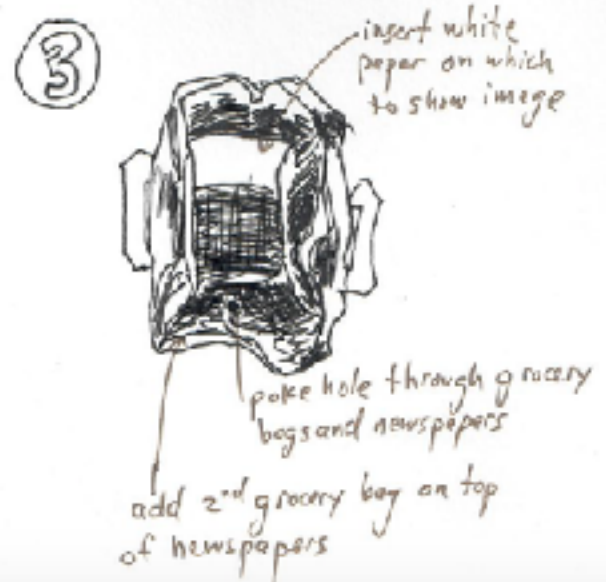 3
insert white
paper on which
to show image
poke hole through grocery
bags and newspapers
add 2nd grocery bag on top
of newspapers